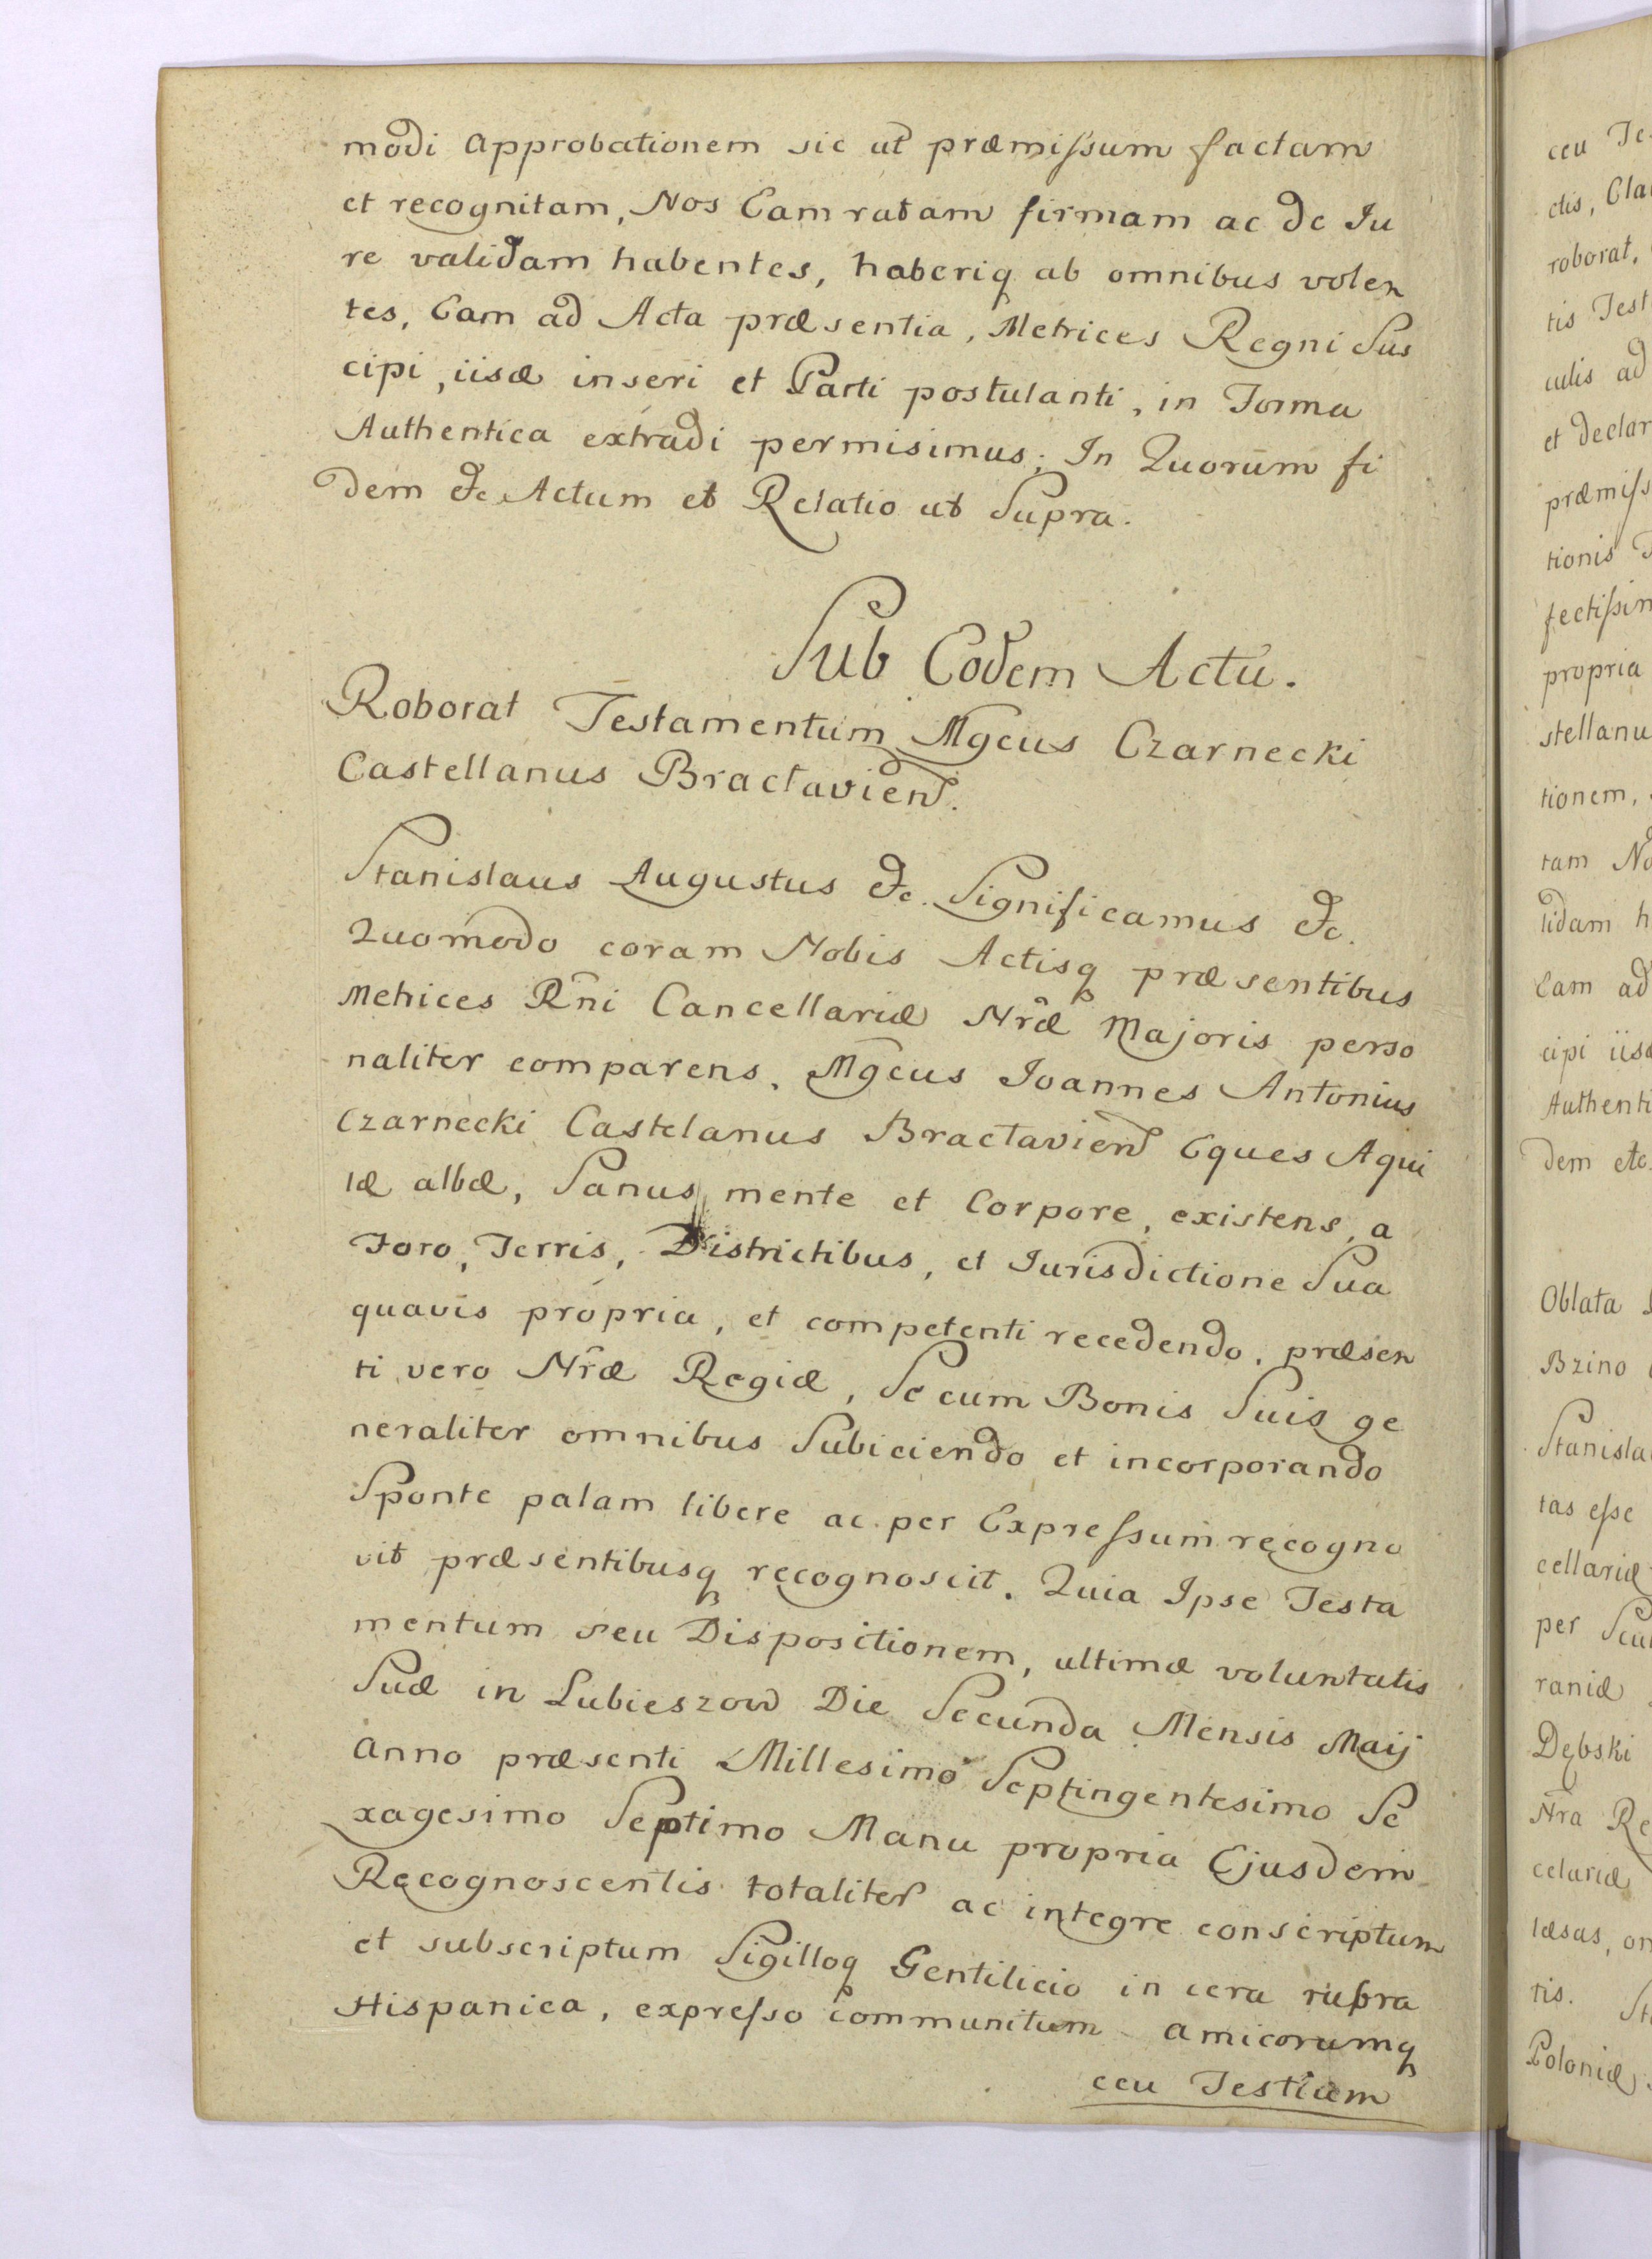 modi approbationem sic ut præmiſsum factam
et recognitam, Nos Eam ratam firmam ac de Iu
re validam habentes, haberiq ab omnibus volen
tes, Eam ad Acta præsentia, Metrices Regni Sus
cipi, iisæ inseri et Parti postulanti, in Forma
Authentica extradi permisimus; In Quorum fi
dem &c Actum et Relatio ut Supra.
Sub Eodem Actu.
Roborat Testamentum Mgcus Czarnecki
Castellanus Bractavien.
Stanislaus Augustus &c. Significamus &c.
Quomodo coram Nobis Actisq præsentibus
Metrices Rni Cancellariæ Nræ Majoris perso
naliter comparens, Mgcus Ioannes Antonius
Czarnecki Castelanus Bractavien Eques Aqui
læ albæ, Sanus mente et Corpore, existens, a
Foro, Terris, Districtibus, et Iurisdictione Sua
quavis propria, et competenti recedendo, præsen
ti vero Nræ Regiæ, Se cum Bonis Suis ge
neraliter omnibus Subiciendo et incorporando
Sponte palam libere ac per Expreſsum recogno
vit præsentibusq recognoscit. Quia Ipse Testa
mentum seu Dispositionem, ultimæ voluntatis
Suæ in Lubieszow Die Secunda Mensis Maij
Anno præsenti Millesimo Septingentesimo Se
xagesimo Septimo Manu propria Ejusdem
Recognoscentis totaliter ac integre conscriptum
et subscriptum Sigilloq Gentilicio in cera rubra
Hispanica, expreſso communitum amicorumq
ceu Testium
ceu
ctis,
roborat,
tis
culis ad
et
tionis
propria
tionem,
tam
lidam
Eam ad
cipi
dem etc.
Oblata
Bzino
tas eſse
cellariæ
per
raniæ
Dębski
Nra
celariæ
læsas,
tis.
Poloniæ